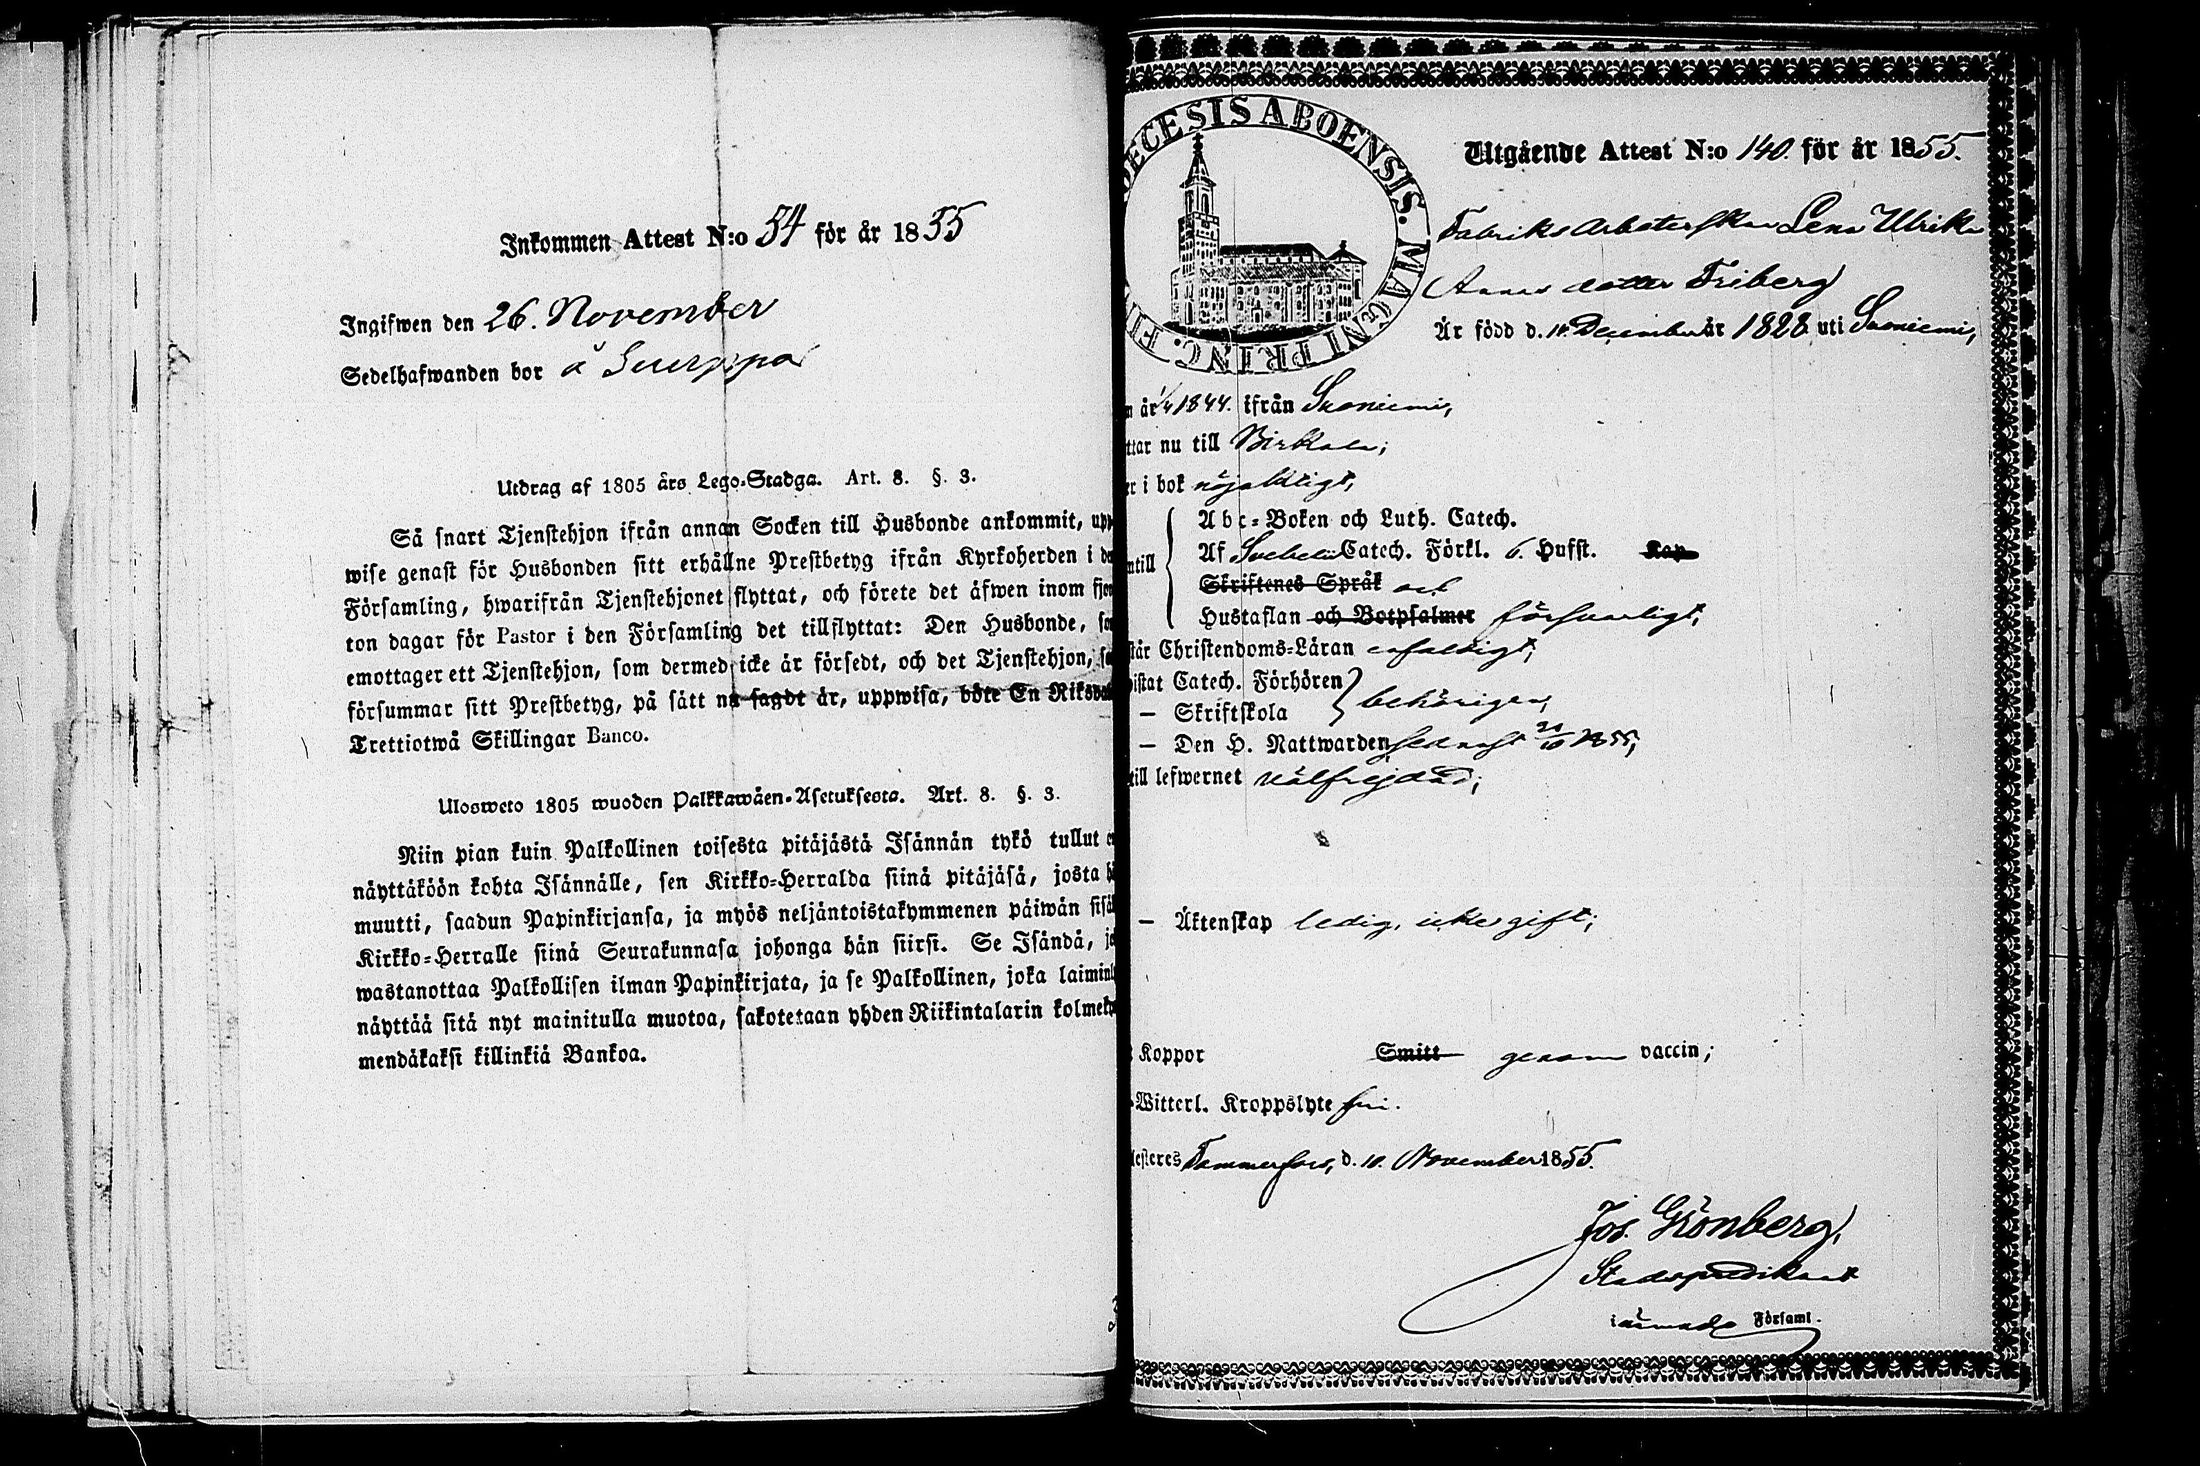 Inkommen Attest N:o 54 för år 1855
Ingifwen den 26. November
Sedelhafwanden bor å Suuppa
Utdrag af 1805 års Lego-Stadga. Art. 8. §. 3.
Så snart Tjenstehjon ifrån annan Socken till Husbonde ankommit, upp
wise genast för Husbonden sitt erhållne Prestbetyg ifrån Kyrkoherden i de
Församling, hwarifrån Tjenstehjonet flyttat, och förete det äfwen inom fjor
ton dagar för Pastor i den Församling det tillflyttat: Den Husbonde, so
emottager ett Tjenstehjon, som dermed icke är försedt, och det Tjenstehjon, so
försummar sitt Prestbetyg, på sätt nu sagdt är, uppwisa, böte En Riksdal
Trettiotwå Skillingar Banco.
Ulosweto 1805 wuoden Palkkawäen-Asetuksesta. Art. 8. §. 3.
Niin pian kuin Palkollinen toisesta pitäjästä Isännän tykö tullut o
näyttäköön kohta Isännälle, sen Kirkko-Herralda siinä pitäjäsä, josta hä
muutti, saadun Papinkirjansa, ja myös neljäntoistakymmenen päiwän sisäl
Kirkko-Herralle siinä Seurakunnasa johonga hän siirsi. Se Isändä, jo
wastanottaa Palkollisen ilman Papinkirjata, ja se Palkollinen, joka laiminl
näyttää sitä nyt mainitulla muotoa, sakotetaan yhden Riikintalarin kolmeky
mendäkaksi killinkiä Bankoa.
ECESIS ABOENSIS. MAGNI PRINC. FI
Utgående Attest N:o 140. för år 1855.
Fabriks Arbeterskan Lena Ulrika
Annas dotter Friberg
Är född d. 14 December år 1828 uti Suoniemi,
n år 1/4 1844. ifrån Suoniemi,
ttar nu till Birkala;
er i bok nöjaktigt,
Abc-Boken och Luth. Catech.
ntill Af Svebelii Catech. Förkl. 6. Hufst. Kap
Skriftenes Språk och
Hustaflan och Botpsalmer försvarligt,
står Christendoms-Läran enfaldigt,
istat Catech. Förhören
— Skriftskola behörigen,
— Den H. Nattwarden sednast 21/10 1855,
till lefwernet välfrejdad;
— Äktenskap ledig, icke gift;
Koppor Smitt genom vaccin;
Witterl. Kroppslyte fri.
esteres Tammerfors, d. 10. November 1855.
Jos. Grönberg,
Stadspredikant
i nämnde Församl.